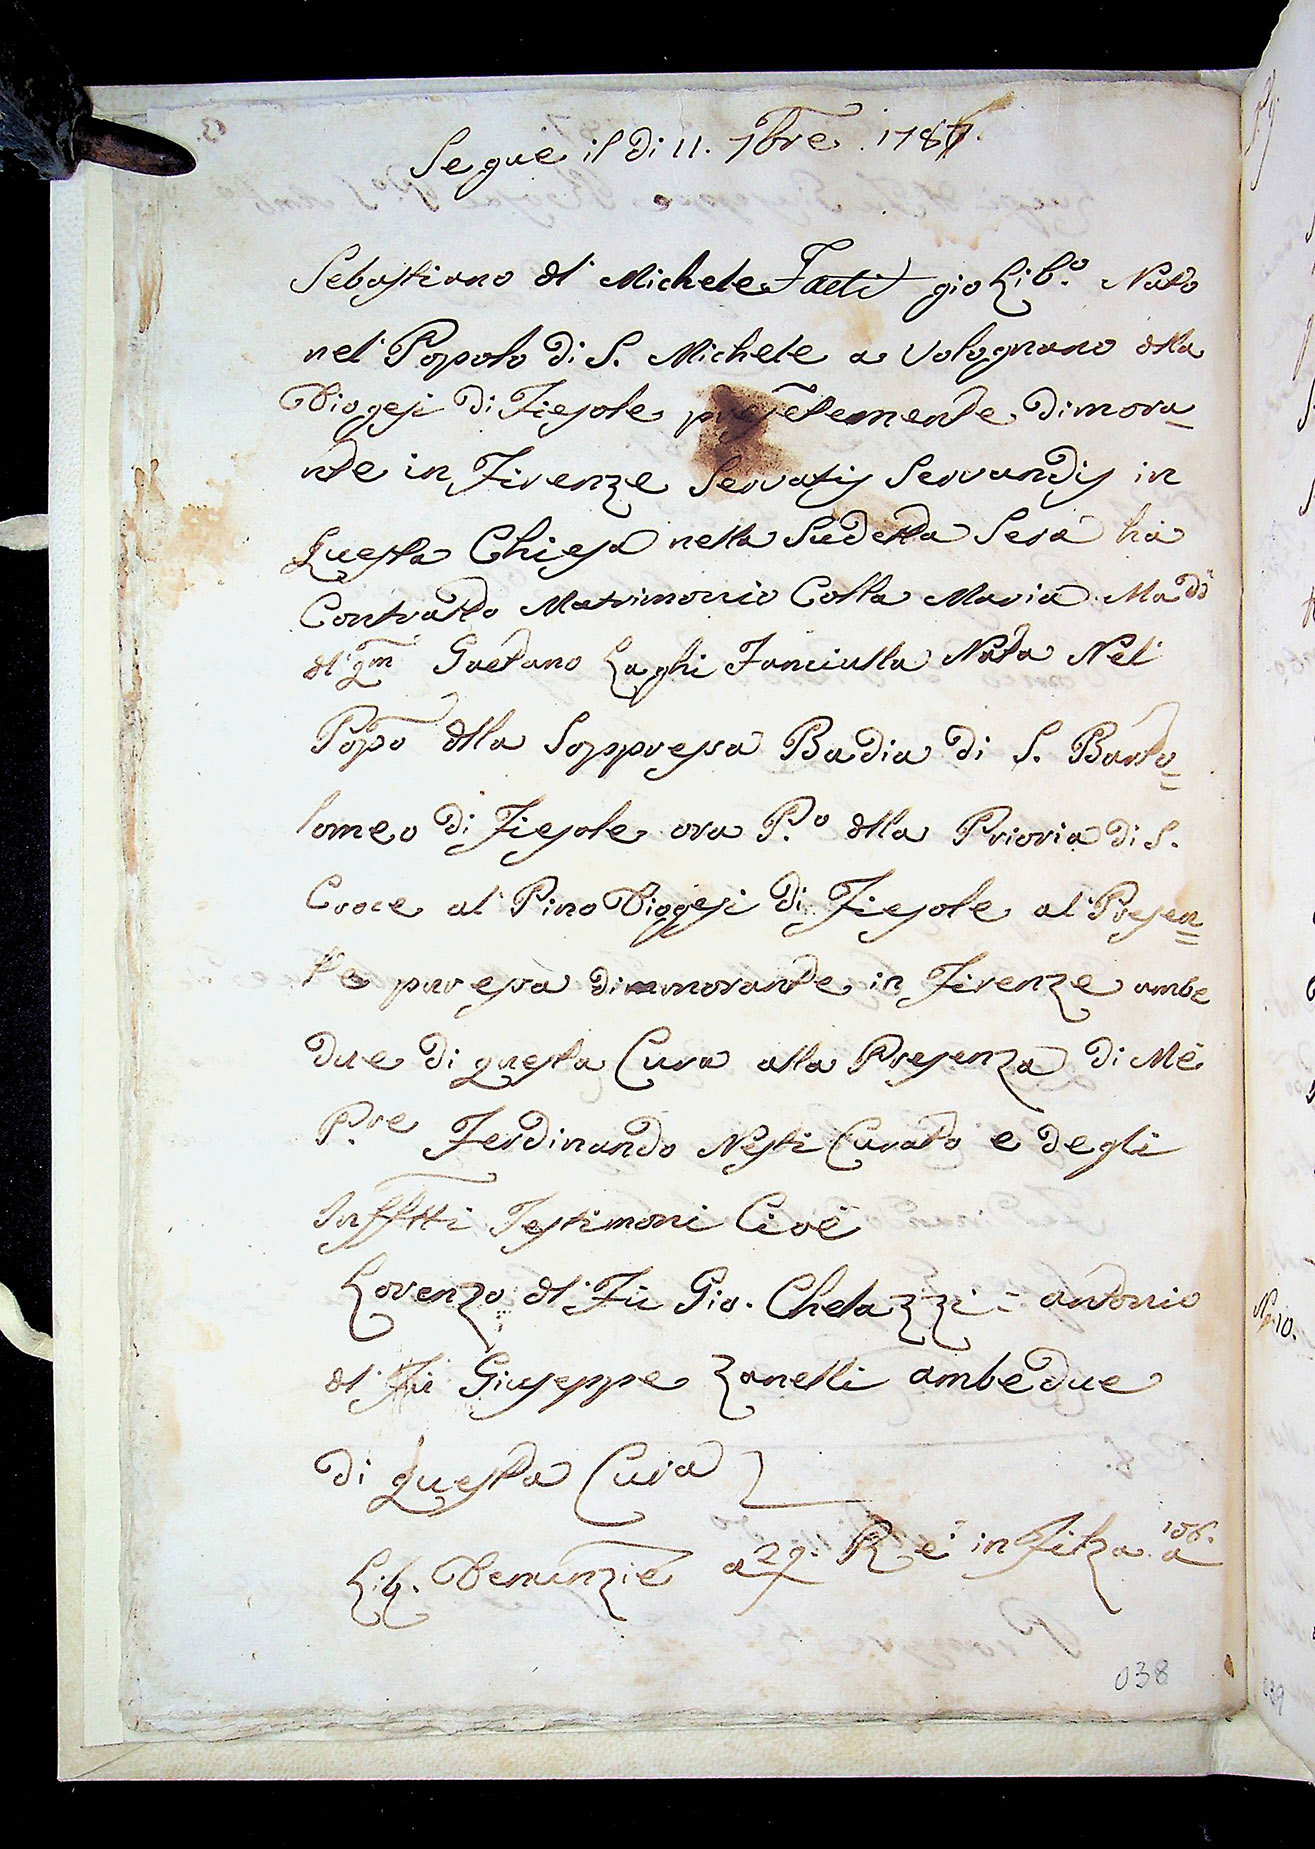 Segue il di 11. 7bre. 1787.
Sebastiano dl Michele Fatti gio Lib.o Nato
nel Popolo di S. Michele a Volognano dlla
Diogesi di Fiesole presetemente dimora=
nte in Firenze Servatis Servandis in
Questa Chiesa nella Sudetta Sera ha
Contratto Matrimonio Colla Maria Madd
dl qm Gaetano Laghi Fanciulla Nata Nel
Popo dlla Soppressa Badia di S. Barto=
lomeo di Fiesole ora P.o dlla Prioria di S.
Croce al Pino Diogesi di Fiesole al Presen=
te pur essa dimmorante in Firenze ambe
due di questa Cura alla Presenza di Me
P.re Ferdinando Nesti Curato e degli
Infftti Testimoni Cioè
Lorenzo dl Fù Gio. Chelazzi = antonio
dl Fù Giuseppe Zanelli ambedue
di Questa Cura
Lib. Denunzie a 29. R e in Filza a 156.
038
No 10.
039